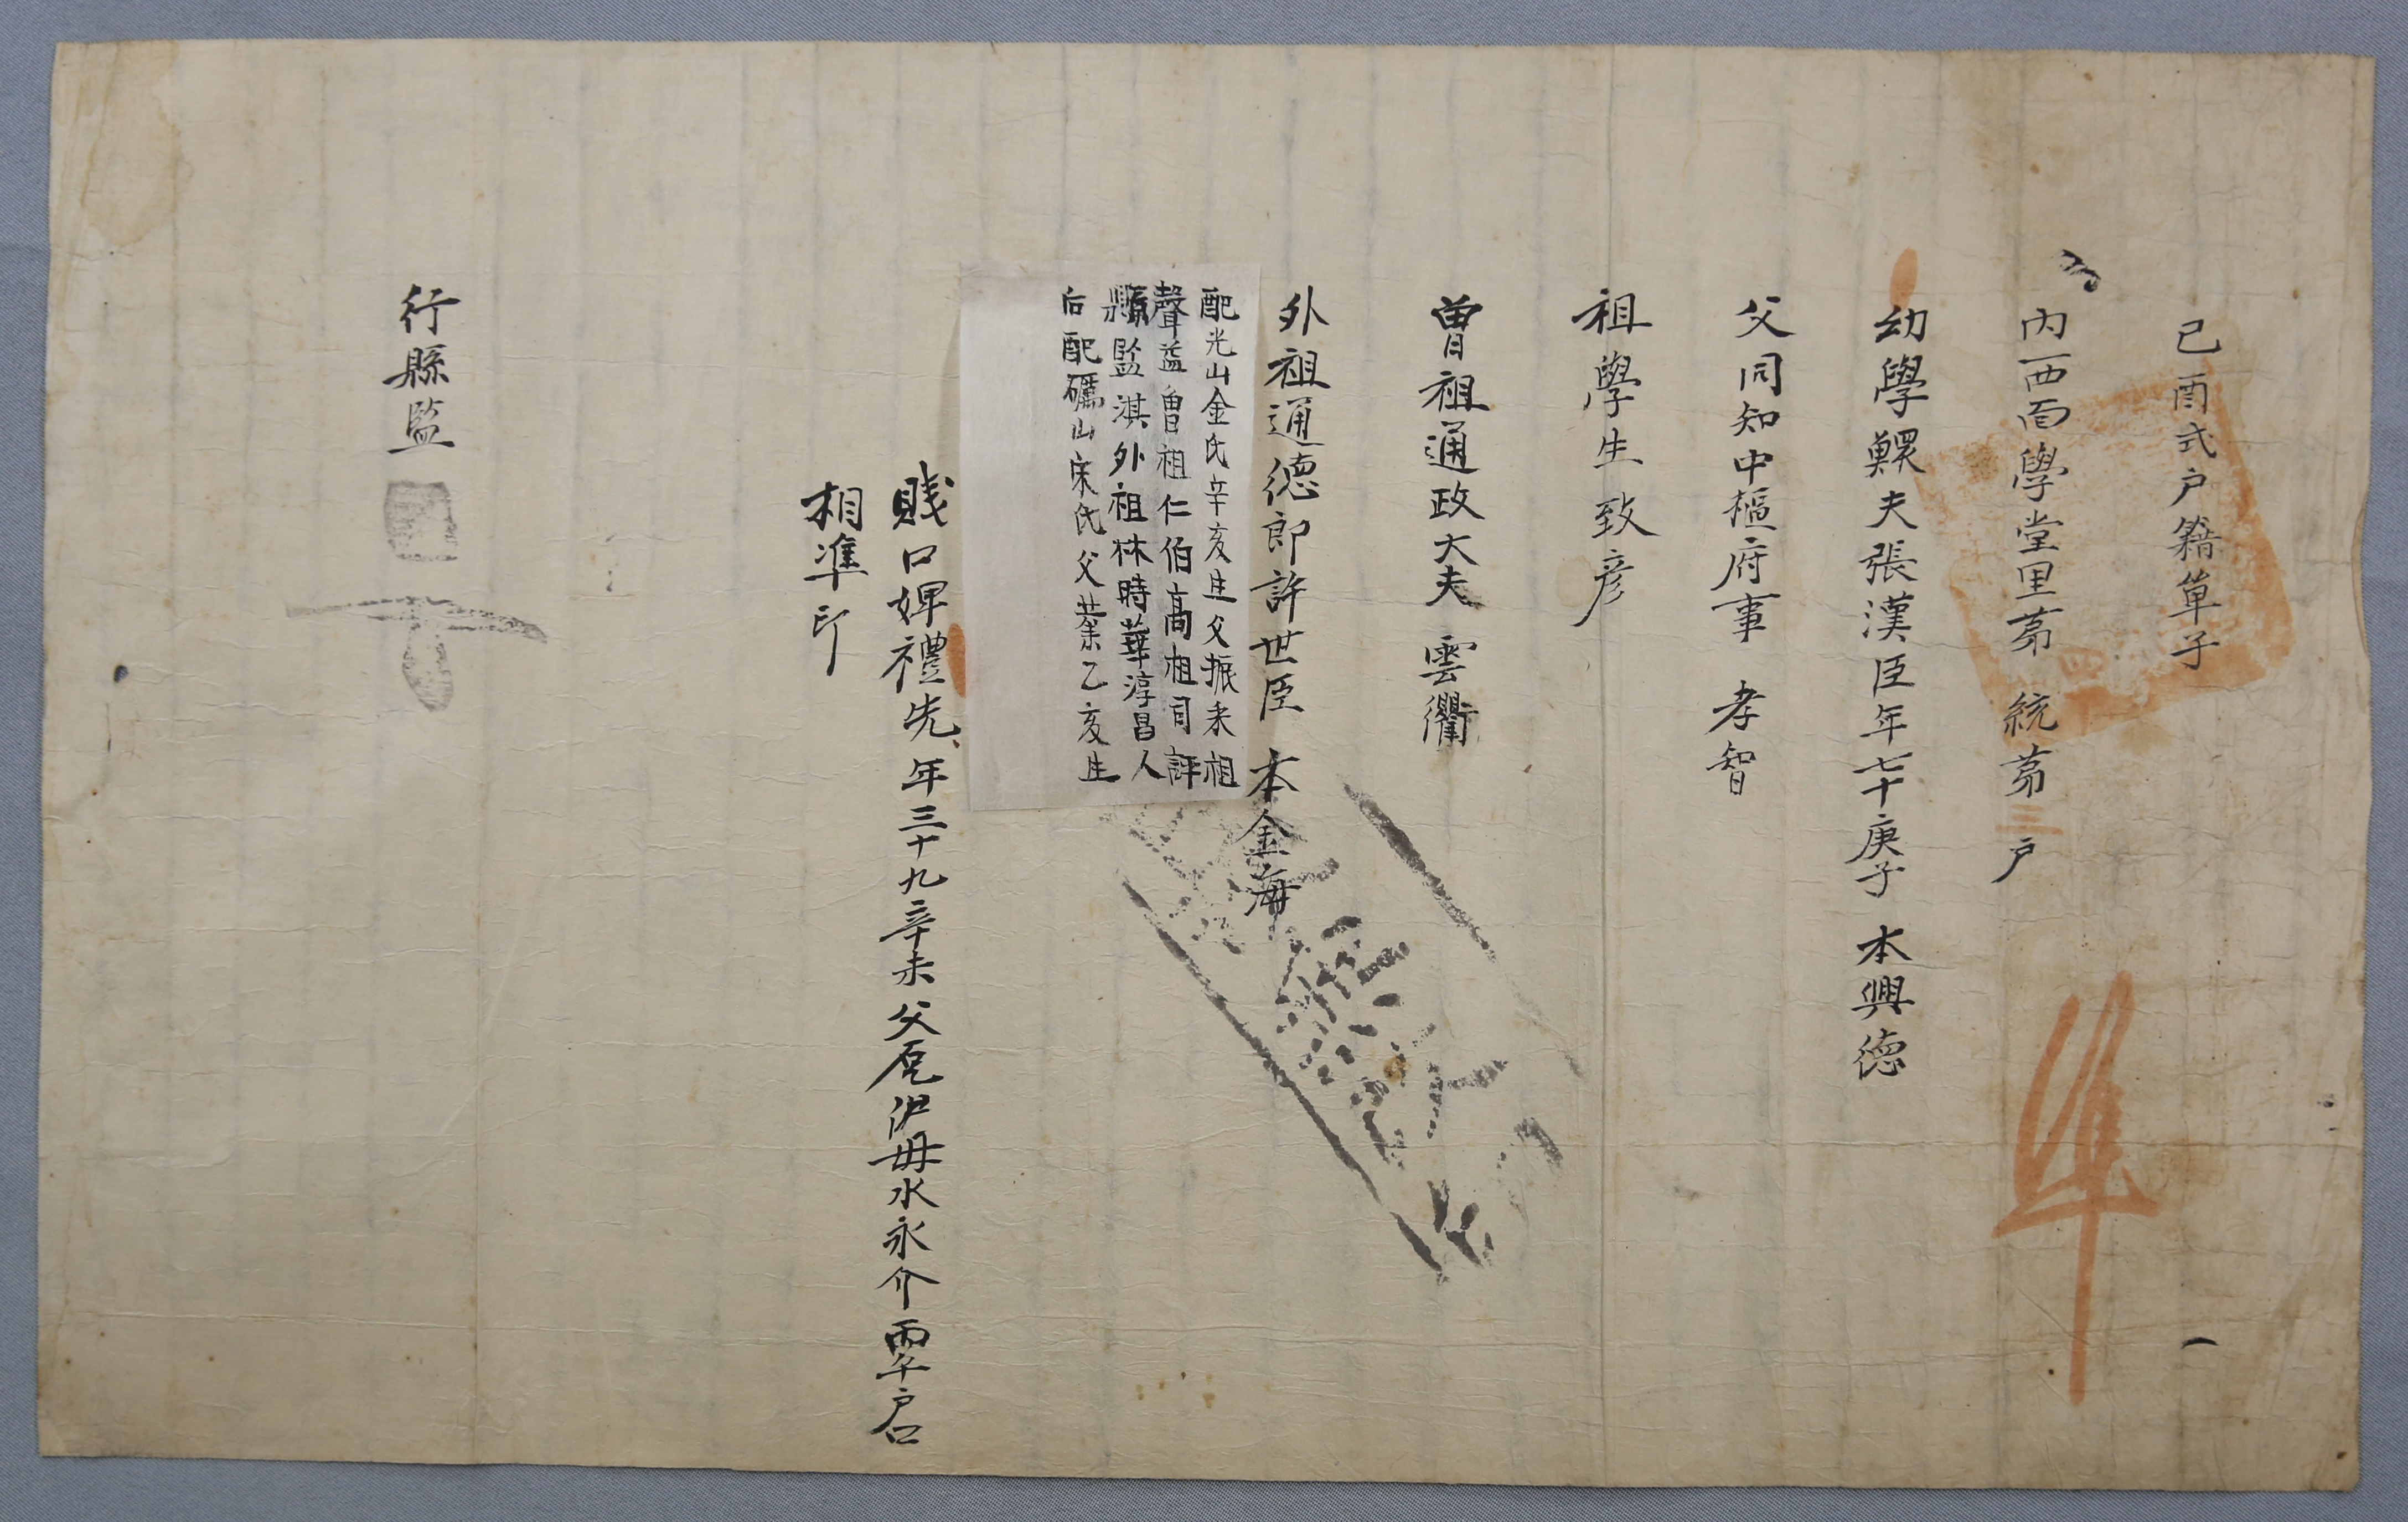 己酉式戶籍單子
內西面學堂里第四統第三戶
幼學鰥夫張漢臣年七十庚子 本興德
父同知中樞府事 孝智
祖學生致彦
曽祖通政大夫 雲衢
外祖通德郎許世臣 本金海
配光山金氏辛亥生父振来祖
聲益曽祖仁伯高祖司評
縣監淇外祖林時華淳昌人
后配礪山宋氏父業乙亥生
賤口婢禮先年三十九辛未父 毋水永介 丙午戶口
相準印
行縣監
準